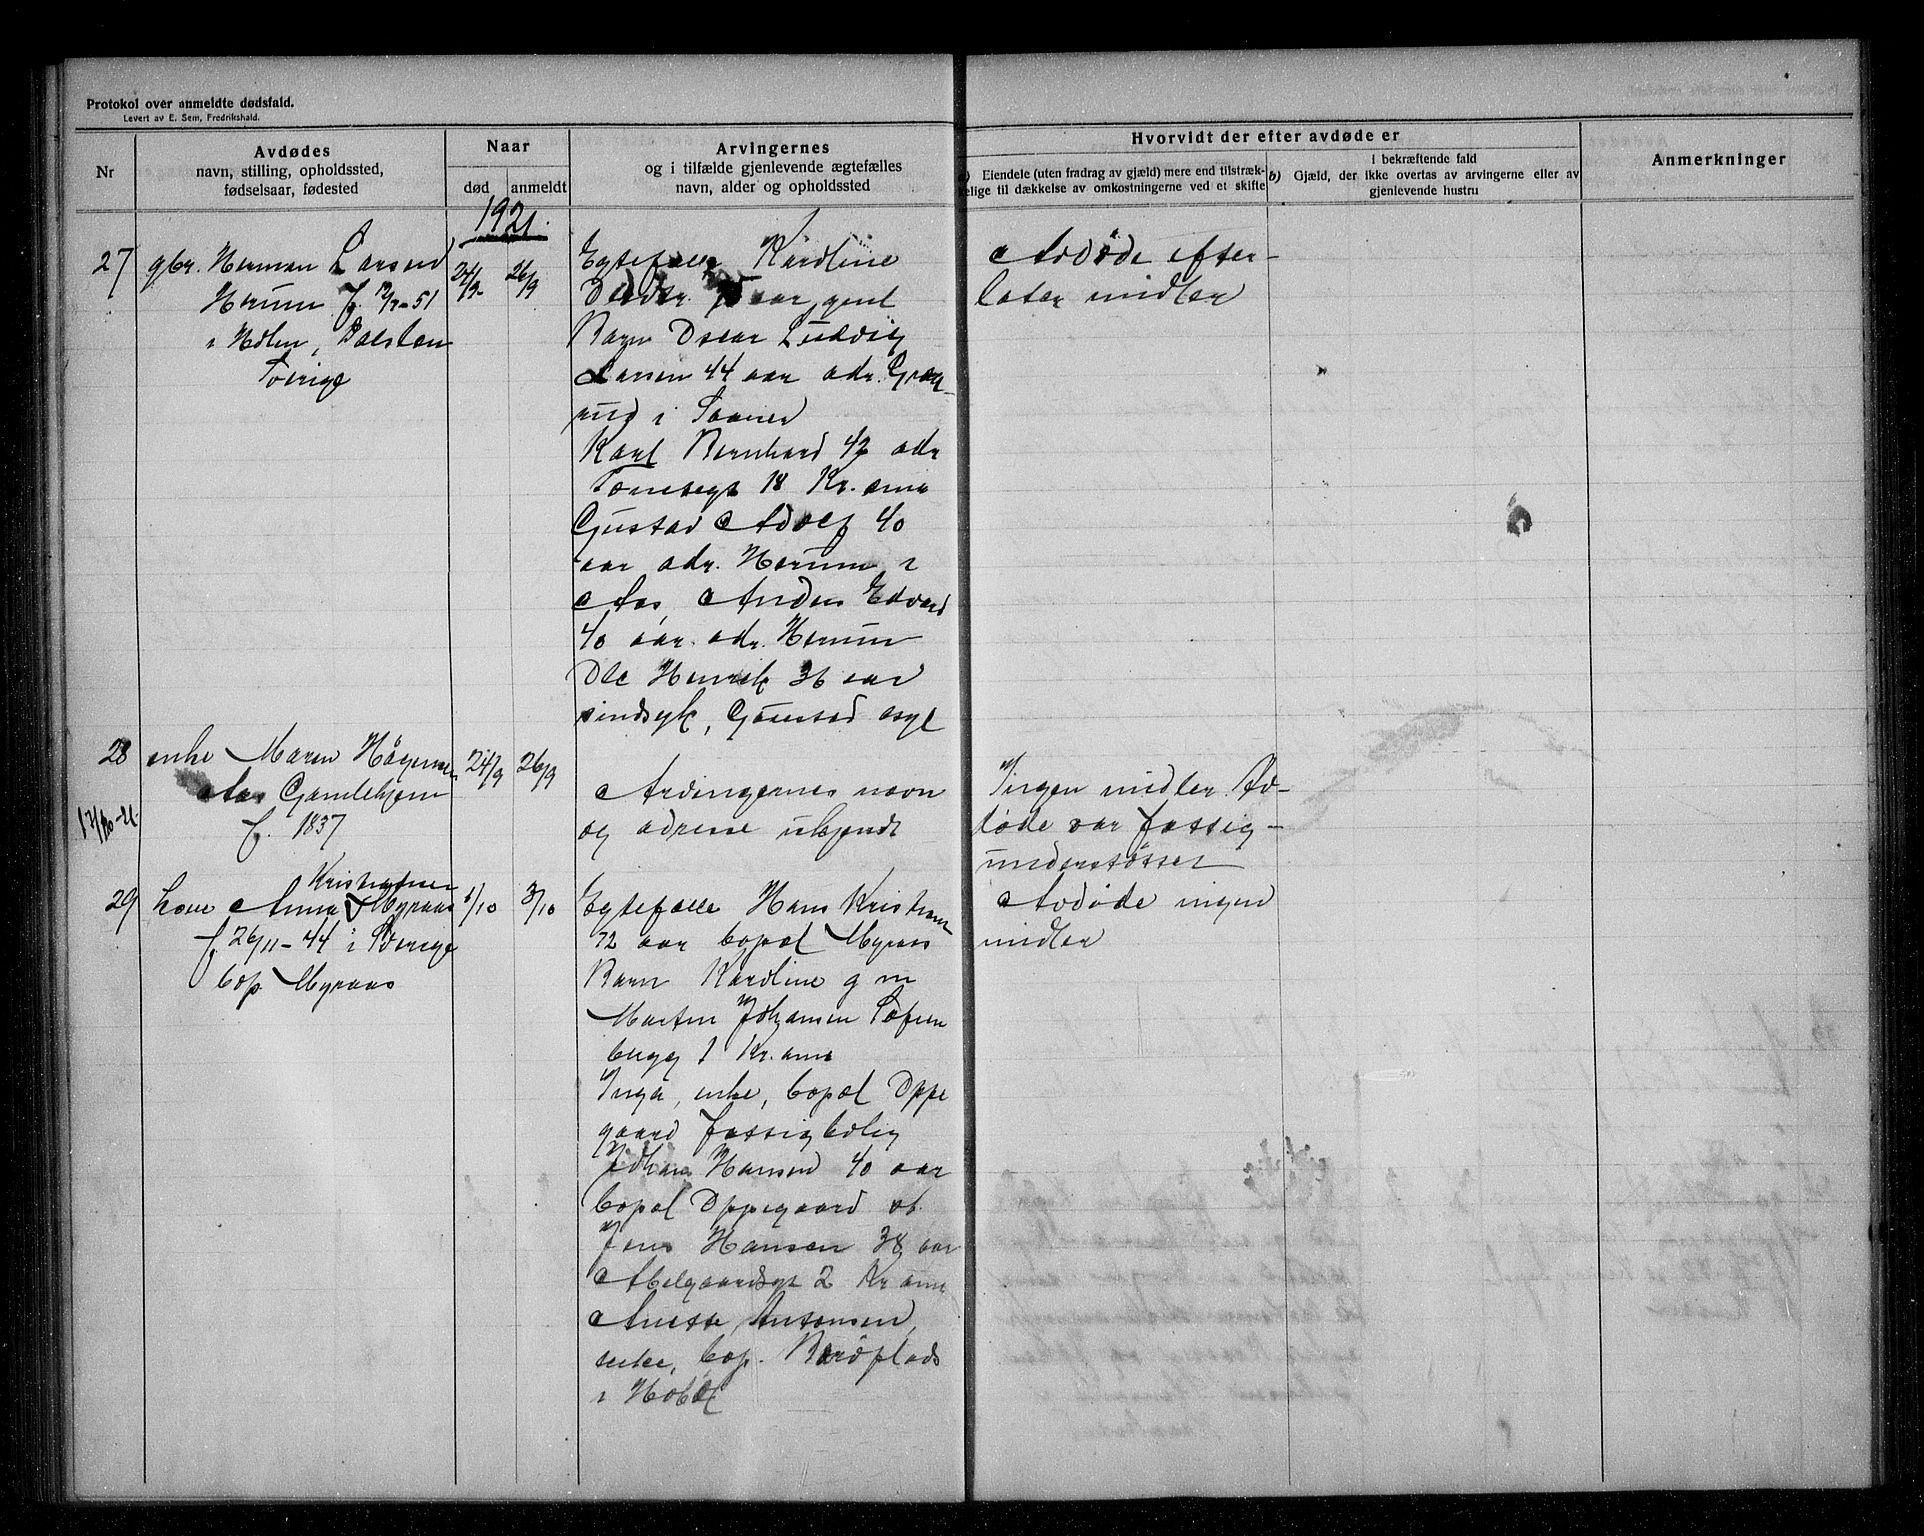 Protokol over anmeldte dødsfald.
Levert av E. Sem, Fredrikshald.
Nr
Avdødes
navn, stilling, opholdssted,
fødselsaar, fødested
Naar
død
anmeldt
Arvingernes
og i tilfælde gjenlevende ægtefælles
navn, alder og opholdssted
Hvorvidt der efter avdøde er
a) Eiendele (uten fradrag av gjæld) mere end tilstræk-
kelige til dækkelse av omkostningerne ved et skifte
b) i bekræftende fald
Gjæld, der ikke overtas av arvingerne eller av
gjenlevende hustru
Anmerkninger
1921.
27
gbr. Herman Larsen
Herum f. 12/7-51
i Holen,
Sverige
24/9
26/9
Egtefælle Karoline
aar, gml
Barn Oscar Ludvig
Larsen 44 aar adr.
rud i Saaner
Karl Bernhard 42 adr
18 Kr.ania
Gustav Adolf 40
aar adr. Herum i
Aas, Anders Edvard
40 aar. adr. Herum
Ole Henrik 36 aar
sindsyk, Gaustad asyl
Avdøde efter-
later midler
28
17/10-21.
enke Maren
Aas Gamlehjem
f. 1837
24/9
26/9
Arvingernes navn
og adresse ubekjendt
Ingen midler. Av-
døde var fattig-
understøttet
29
Kristiansen
kone Anna Myraas
f. 26/11-44 i Sverige
bop. Myraas
1/10
3/10
Egtefælle Hans Kristiansen
72 aar bopæl Myraas
Barn Karoline g m
Martin Johansen Sofien
bugg 1 Kr.ania
Inga, enke, bopæl Oppe
gaard fattigbolig
Johan Hansen 40 aar
bopæl Oppegaard st.
Jens Hansen 38 aar
Abelgaardsgt 2 Kr ania
Anette Antonsen,
enke, bop.
i Hobøl
Avdøde ingen
midler